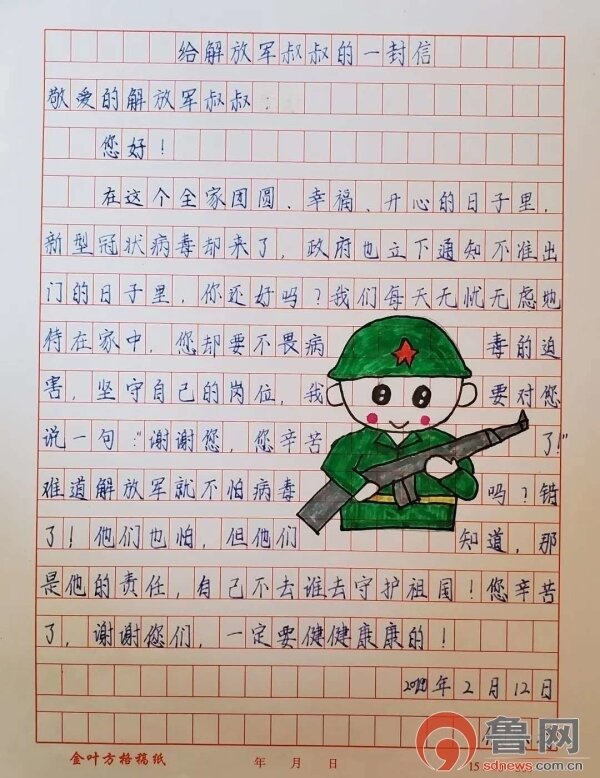 给解放军叔叔的一封信
敬爱的解放军叔叔：
您好！
在这个全家团圆、幸福、开心的日子里，
新型冠状病毒却来了，政府也立下通知不准出
门的日子里，你还好吗？我们每天无忧无虑地
待在家中，您却要不畏病毒的迫
害，坚守自己的岗位，我要对您
说一句："谢谢您，您辛苦了！"
难道解放军就不怕病毒吗？错
了！他们也怕，但他们知道，那
是他的责任，自己不去谁去守护祖国！您辛苦
了，谢谢您们，一定要健健康康的！
年2月12日
金叶方格稿纸
年 月 日
15
鲁网
sdnews.com.cn